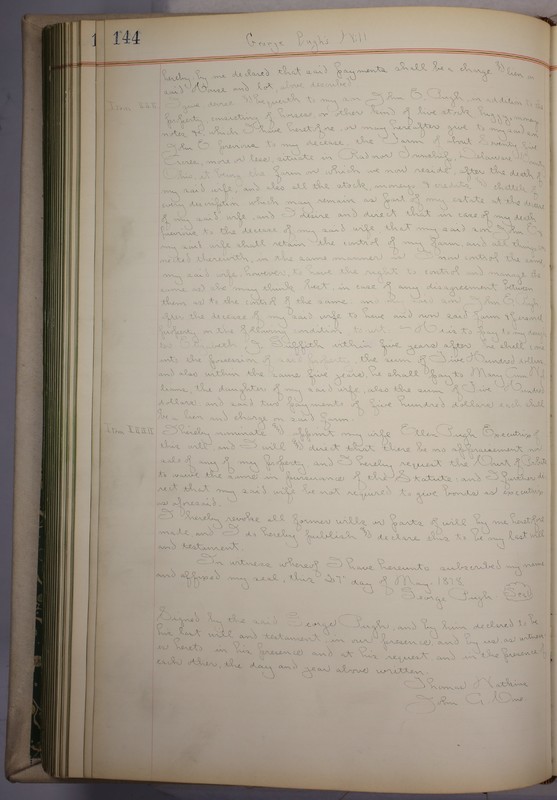 144
George Pugh Will
hereby by me declared that said payments shall be a charge & lien on
said House and lot above described
Item
I give and bequeath to my son John E. Pugh, in addition to the
property, consisting of horses or other kind of live stock, buggy, money
notes &c which I have heretofore, or may hereafter give to my said son
John E previous to my decease, the Farm of about Seventy five
Acres, more or less, situate in Radnor Township, Delaware County
Ohio it being the farm on which we now reside, after the death of
my said wife, and also all the stock, moneys & credits & chattels of
every description which may remain as part of my estate at the decease
of my said wife, and I desire and direct that in case of my death
previous to the decease of my said wife that my said son John E.
my said wife shall retain the control of my farm and all things
nected therewith, in the same manner as I now control the same
my said wife, however, to have the right to control and manage the
same as she may think best, in case of any disagreement between
them as to the control of the same
after the decease of my said wife to have and own said farm & personal
property on the following condition to wit: He is to pay to my
Griffith within five years after he shall come
into the possession of said property, the sum of Five Hundred dollars
and also within the same five years, he shall pay to Mary Ann
the daughter of my said wife, also the sum of Five Hundred
dollars and said two payments of five hundred dollars each shall
be a lien and charge on said farm.
Item
I hereby nominate & appoint my wife Ellen Pugh Executrix of
this will and I will & direct that there be no appraisement or
sale of any of my property, and I hereby request the Court of Probate
to omit the same in pursuance of the Statute, and I further di
rect that my said wife be not required to give bonds as Executrix
as aforesaid.
I hereby revoke all former wills or parts of will by me heretofore
made and I do hereby publish & declare this to be my last will
and testament
In witness whereof I have hereunto subscribed my name
and affixed my seal, this 27th day of May
George Pugh Seal
Signed by the said George Pugh, and by him declared to be
his last will and testament in our presence, and by us as witness
es hereto in his presence and at his request and in the presence of
each other, the day and year above written.
Thomas Watkins
John G.